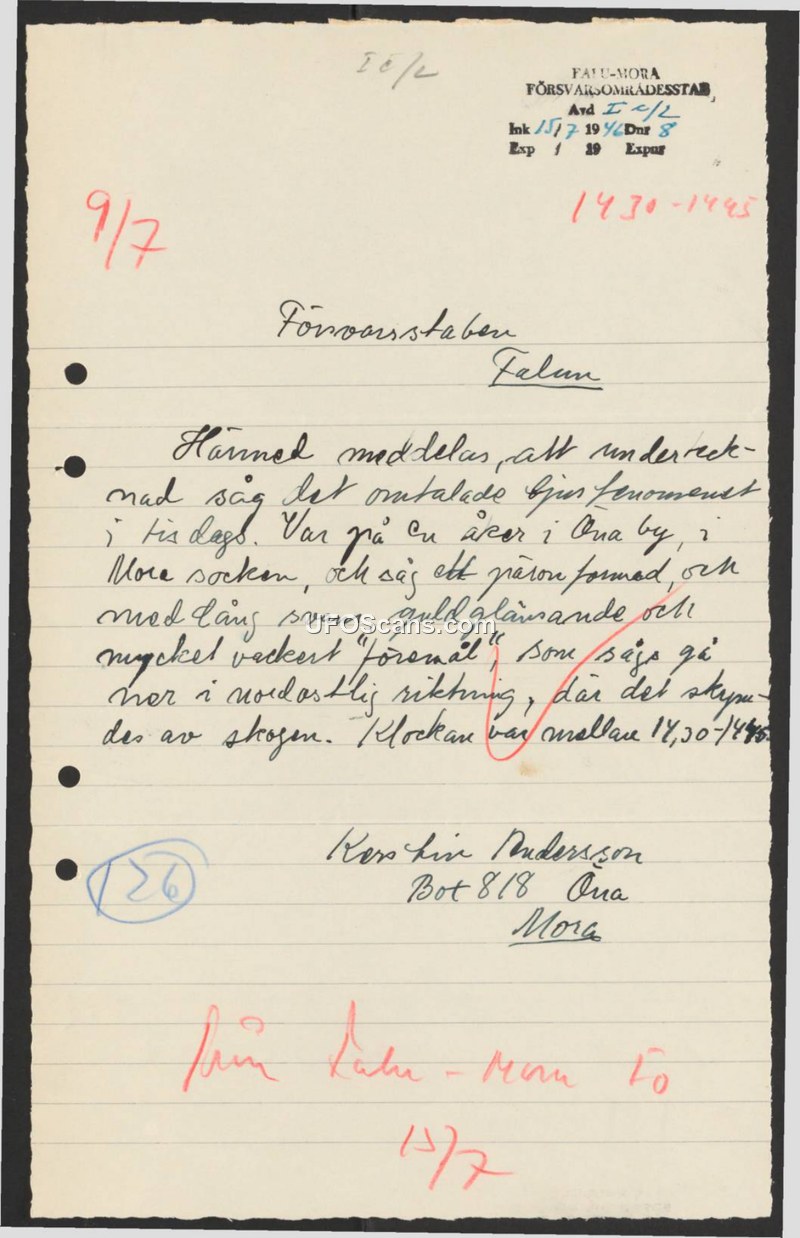 I c/2
FALU-MORA
FÖRSVARSOMRÅDESSTAB
Avd I c/2
Ink 15/7 1946 Dnr 8
Exp / 19 Expnr
9/7
1430-1445
Försvarsstaben
Falun
Härmed meddelas, att underteck-
nad såg det omtalade ljusfenomenet
i tisdags. Var på en åker i Öna by, i
Mora socken, och såg ett päronformad, och
med lång svans, guldglänsande och
mycket vackert "föremål", som sågs gå
ner i nordostlig riktning, där det skym-
des av skogen. Klockan var mellan 14,30-1445.
UFOScans.com
Kerstin Andersson
Box 818 Öna
Mora
126
från Falu-Mora Fo
15/7